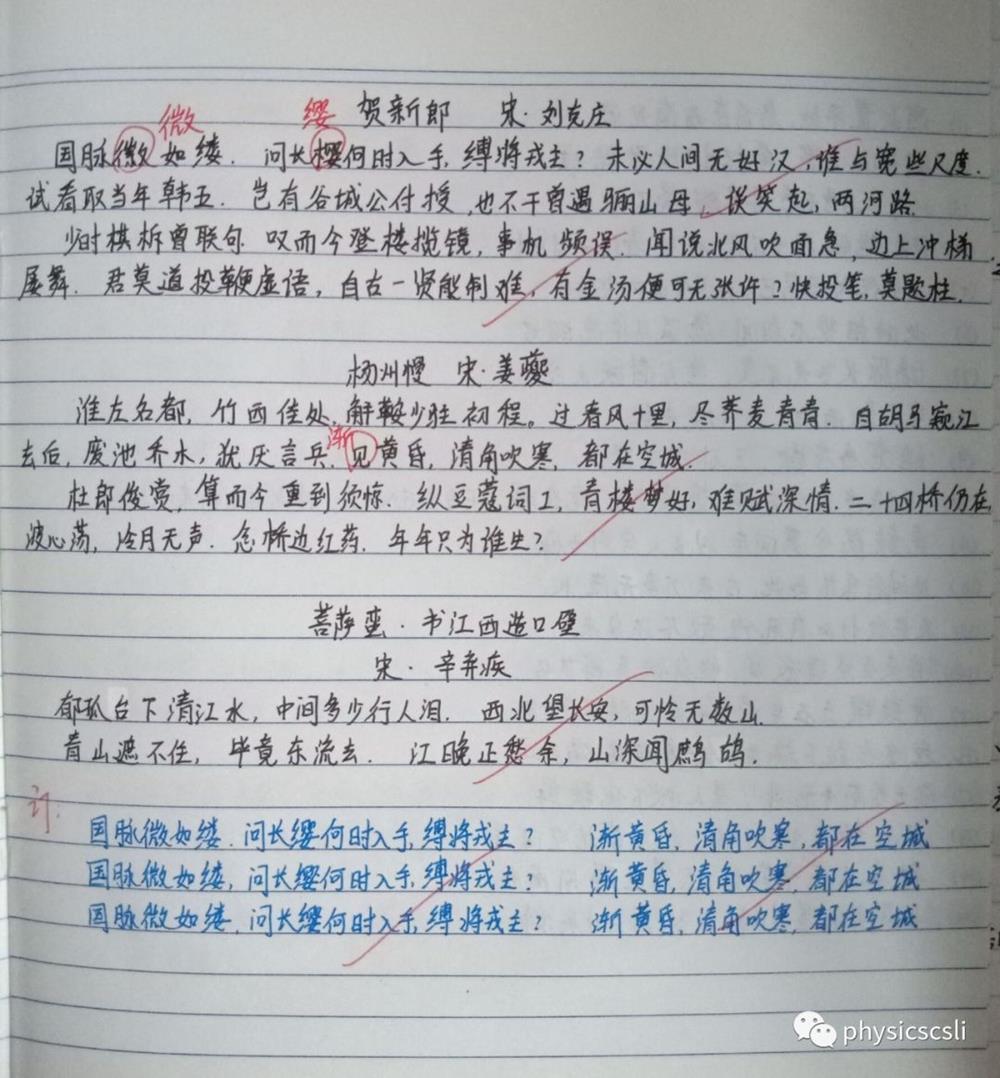 微 缨 贺新郎 宋·刘克庄
国脉微如缕. 问长樱何时入手,缚将戎主? 未必人间无好汉,谁与宽些尺度.
试看取当年韩五. 岂有谷城公付授,也不干曾遇骊山母. 谈笑起,两河路.
少时棋柝曾联句. 叹而今登楼揽镜,事机频误. 闻说北风吹面急,边上冲梯
屡舞. 君莫道投鞭虚语,自古一贤能制难,有金汤便可无张许?快投笔,莫题柱.
杨州慢 宋·姜夔
淮左名都,竹西佳处,解鞍少驻初程。过春风十里,尽荠麦青青. 自胡马窥江
渐
去后,废池乔木,犹厌言兵.见黄昏,清角吹寒,都在空城.
杜郎俊赏,算而今重到须惊. 纵豆蔻词工,青楼梦好,难赋深情.二十四桥仍在,
波心荡,冷月无声. 念桥边红药. 年年只为谁生?
菩萨蛮·书江西造口壁
宋·辛弃疾
郁孤台下清江水,中间多少行人泪. 西北望长安,可怜无数山.
青山遮不住,毕竟东流去. 江晚正愁余,山深闻鹧鸪.
订:
国脉微如缕.问长缨何时入手,缚将戎主? 渐黄昏,清角吹寒,都在空城
国脉微如缕,问长缨何时入手,缚将戎主? 渐黄昏,清角吹寒,都在空城
国脉微如缕,问长缨何时入手,缚将戎主? 渐黄昏,清角吹寒,都在空城
physicscsli